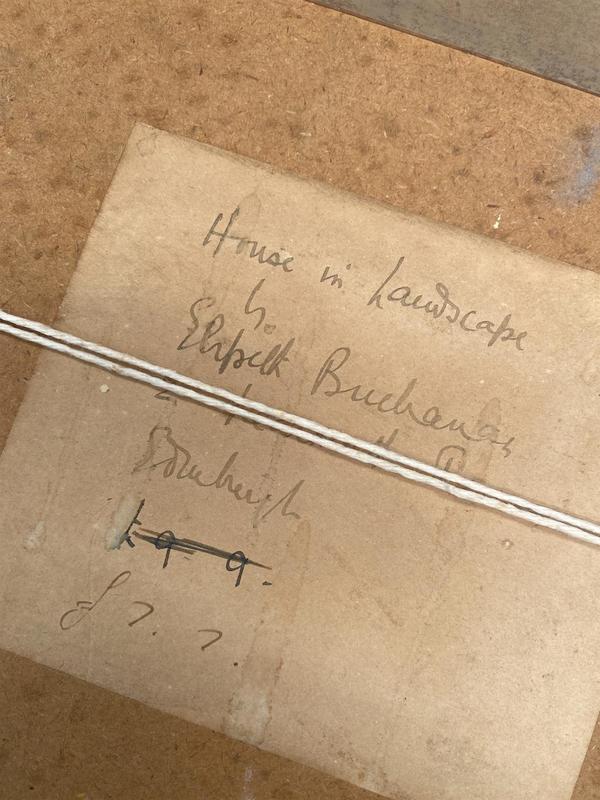 House in Landscape
by
Elspeth Buchanan
Edinburgh
£9. 9.
£7. 7.